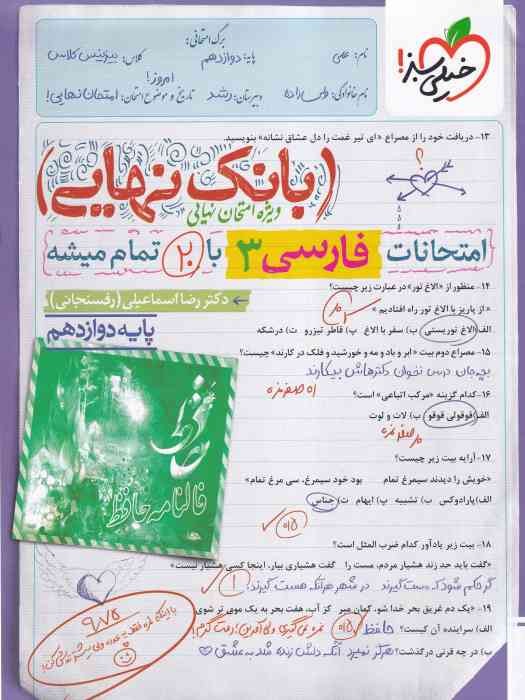 خیلی سبز!
برگ امتحانی:
نام: علی
پایه: دوازدهم
کلاس: بیزینس کلاس
نام خانوادگی:
دبیرستان: رشد
تاریخ و موضوع امتحان: امروز! امتحان نهایی!
۱۳- دریافت خود را از مصراع «ای تیر غمت را دل عشاق نشانه» بنویسید.
(بانک نهایی)
ویژه امتحان نهایی
امتحانات فارسی ۳ با ۲۰ تمام میشه
۱۴- منظور از «الاغ تور» در عبارت زیر چیست؟
دکتر رضا اسماعیلی (رفسنجانی)
«از پاریز با الاغ تور راه افتادیم.»
پایه دوازدهم
الف) الاغ توریستی ب) سفر با الاغ پ) قاطر تیزرو ت) درشکه
۱۵- مصراع دوم بیت «ابر و باد و مه و خورشید و فلک در کارند» چیست؟
بچه‌مان درس نخوان دکترهاش بیکارند
۱۶- کدام گزینه «مرکب اتباعی» است؟
الف) قوقولی قوقو ب) لات و لوت
۱۷- آرایه بیت زیر چیست؟
«خویش را دیدند سیمرغ تمام بود خود سیمرغ، سی مرغ تمام»
الف) پارادوکس ب) تشبیه پ) ایهام ت) جناس
فالنامه حافظ
۱۸- بیت زیر یادآور کدام ضرب المثل است؟
«گفت باید حد زند هشیار مردم، مست را گفت هشیاری بیار، اینجا کسی هشیار نیست»
گر حکم شود که مست گیرند در شهر هر آنکه هست گیرند!
۱۹- «یک دم غریق بحر خدا شو، گمان مبر کز آب هفت بحر به یک موی تر شوی»
الف) سراینده آن کیست؟ حافظ
ب) در چه قرنی درگذشت؟ هرگز نمیرد آنکه دلش زنده شد به عشق